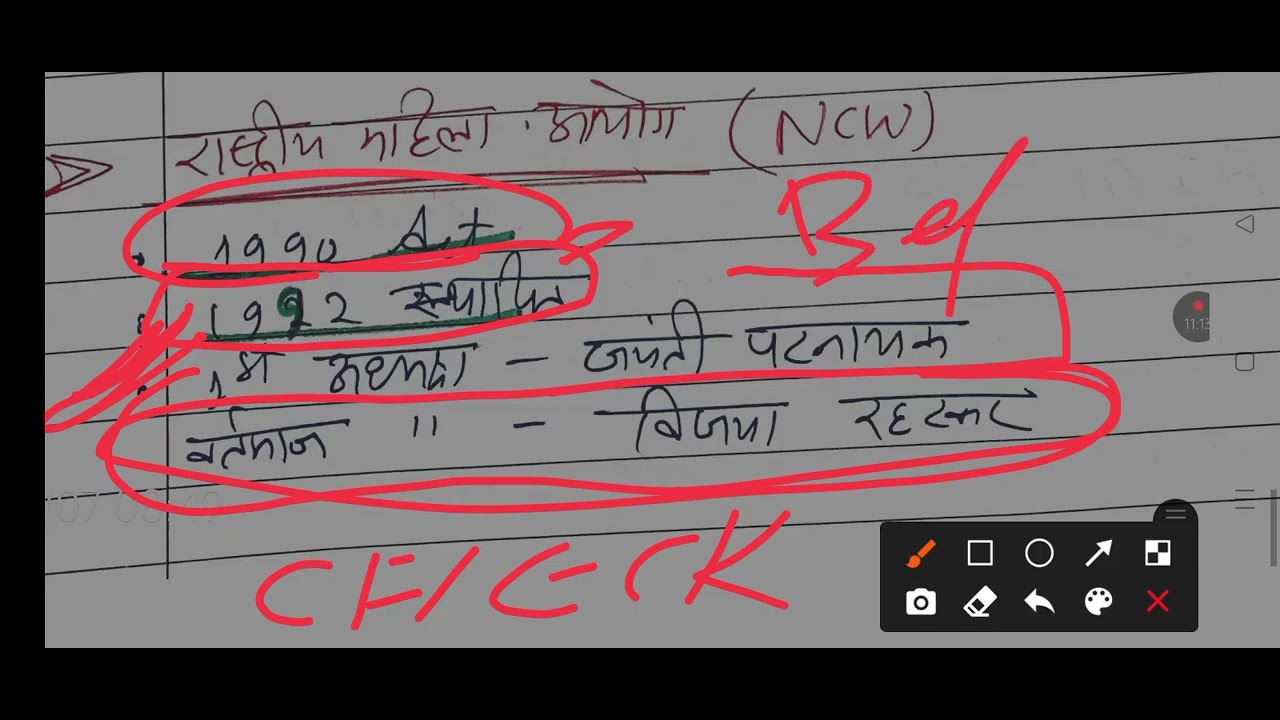 राष्ट्रीय महिला आयोग (NCW)
1990 Act
1992 स्थापित
1म अध्यक्ष - जयंती पटनायक
वर्तमान " - विजया रहाटकर
CHECK
11:13